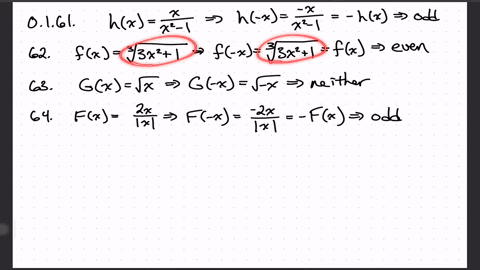 0.1.61. h(x) = x/(x²-1) ⇒ h(-x) = -x/(x²-1) = -h(x) ⇒ odd
62. f(x) = ∛(3x²+1) ⇒ f(-x) = ∛(3x²+1) = f(x) ⇒ even
63. G(x) = √x ⇒ G(-x) = √-x ⇒ neither
64. F(x) = 2x/|x| ⇒ F(-x) = -2x/|x| = -F(x) ⇒ odd